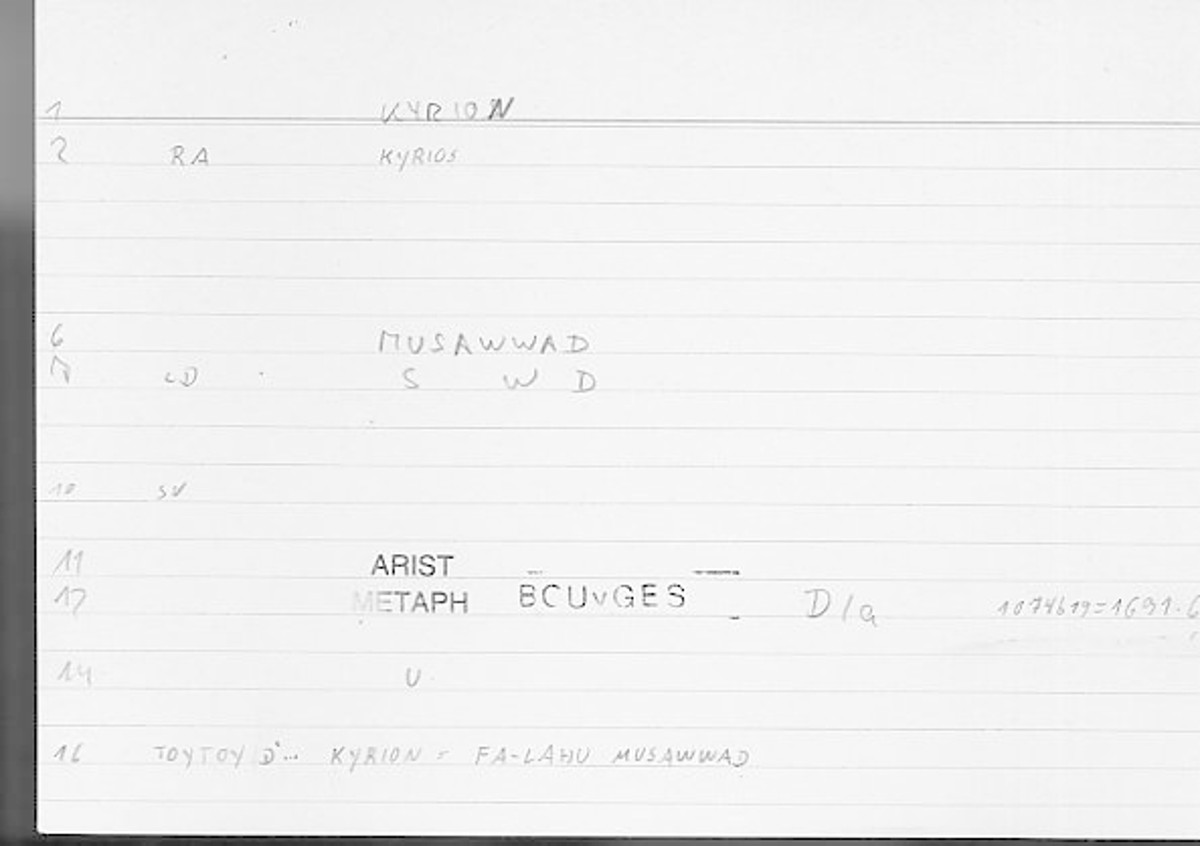 1 KYRION
2 RA KYRIOS
6 MUSAWWAD
S W D
10 SV
11 ARIST
12 METAPH BCUVGES D/a
14 U
16 TOYTOY D'... KYRION = FA-LAHU MUSAWWAD